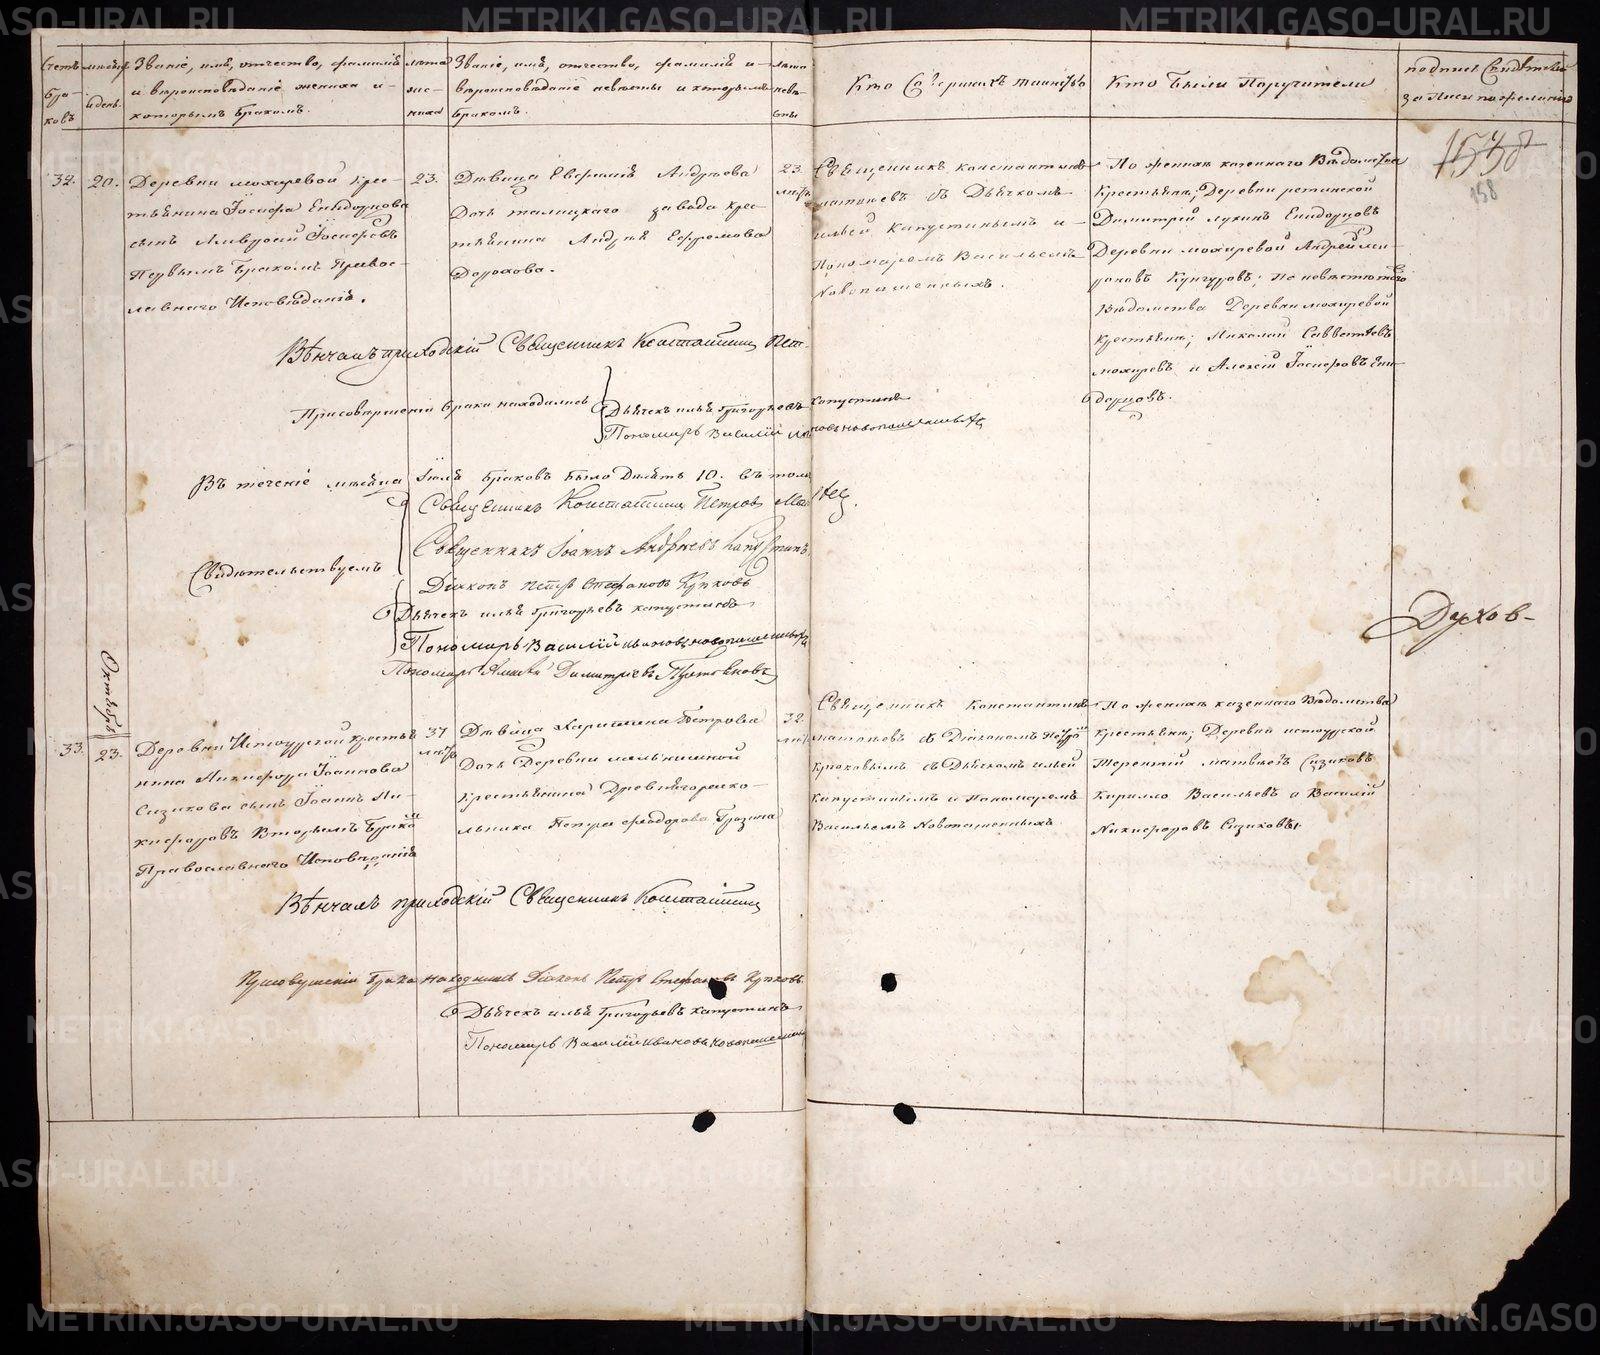 Счетъ бра-ковъ
мѣсяцъ и день
Званіе, имѣ, отчество, фамилія
и вѣроисповѣданіе жениха и
которымъ бракомъ.
лѣта же-ниха
Званіе, имѣ, отчество, фамилія и
вѣроисповѣданіе невѣсты и которымъ
бракомъ.
лѣта невѣ-сты
Кто Совершалъ таинство
Кто Были Поручители
подпись Свидѣтелей
записи по желанію
1558
158
32.
20.
Деревни Мохиревой крес-
тьянина Іосифа Епидорцова
сынъ Амвросій Іосифовъ
Первымъ бракомъ Правос-
лавнаго Исповѣданія.
23.
Дѣвица Евфимія Андреева
Дочь талицкаго завода крес-
тьянина Андрея Ефремова
Дорохова.
23.
Священникъ Константинъ
съ Дьячкомъ
Ильей Капустинымъ и
Пономаремъ Васильемъ
Новопашенныхъ.
По женихѣ казеннаго Вѣдомства
Крестьяне; Деревни
Димитрій Лукинъ Епидорцовъ
Деревни Мохиревой Андрей
Кунгуровъ; По невѣстѣ того
Вѣдомства Деревни Мохиревой
крестьяне; Николай Савватѣевъ
Мохиревъ и Алексій Іосифовъ Епи-
дорцовъ.
Вѣнчалъ приходскій Священникъ Константинъ Пет-
При совершеніи брака находились
Дьячекъ Илья Григорьевъ Капустинъ
Пономарь Василій Новопашенныхъ
Въ теченіе мѣсяца Іюля браковъ было Десять 10. въ томъ
Священникъ Константинъ Петровъ
Священникъ Іоаннъ Андреевъ Капустинъ
Свидѣтельствуемъ
Діаконъ Петръ Стефановъ Крюковъ
Дьячекъ Илья Григорьевъ Капустинъ
Пономарь Василій Ивановъ Новопашенныхъ
Пономарь Димитріевъ
Духов-
Октябрь
33.
23.
Деревни крестья-
нина Никифора Іоаннова
Сизикова сынъ Іоаннъ Ни-
кифоровъ Вторымъ Бракомъ
Православнаго Исповѣданія
37
лѣтъ
Дѣвица Харитина Петрова
Дочь Деревни Мельнишной
крестьянина Древлегорско-
льника Петра Феодорова Грозина
32.
лѣтъ
Священникъ Константинъ
съ Діакономъ Петромъ
Крюковымъ съ Дьячкомъ Ильей
Капустинымъ и Пономаремъ
Васильемъ Новопашенныхъ.
По женихѣ казеннаго Вѣдомства
крестьяне; Деревни
Терентій Матвѣевъ Сизиковъ
Кирилло Васильевъ и Василій
Никифоровъ Сизиковы.
Вѣнчалъ приходскій Священникъ Константинъ
При совершеніи брака находились Діаконъ Петръ Стефановъ Крюковъ
Дьячекъ Илья Григорьевъ Капустинъ
Пономарь Василій Ивановъ Новопашенныхъ